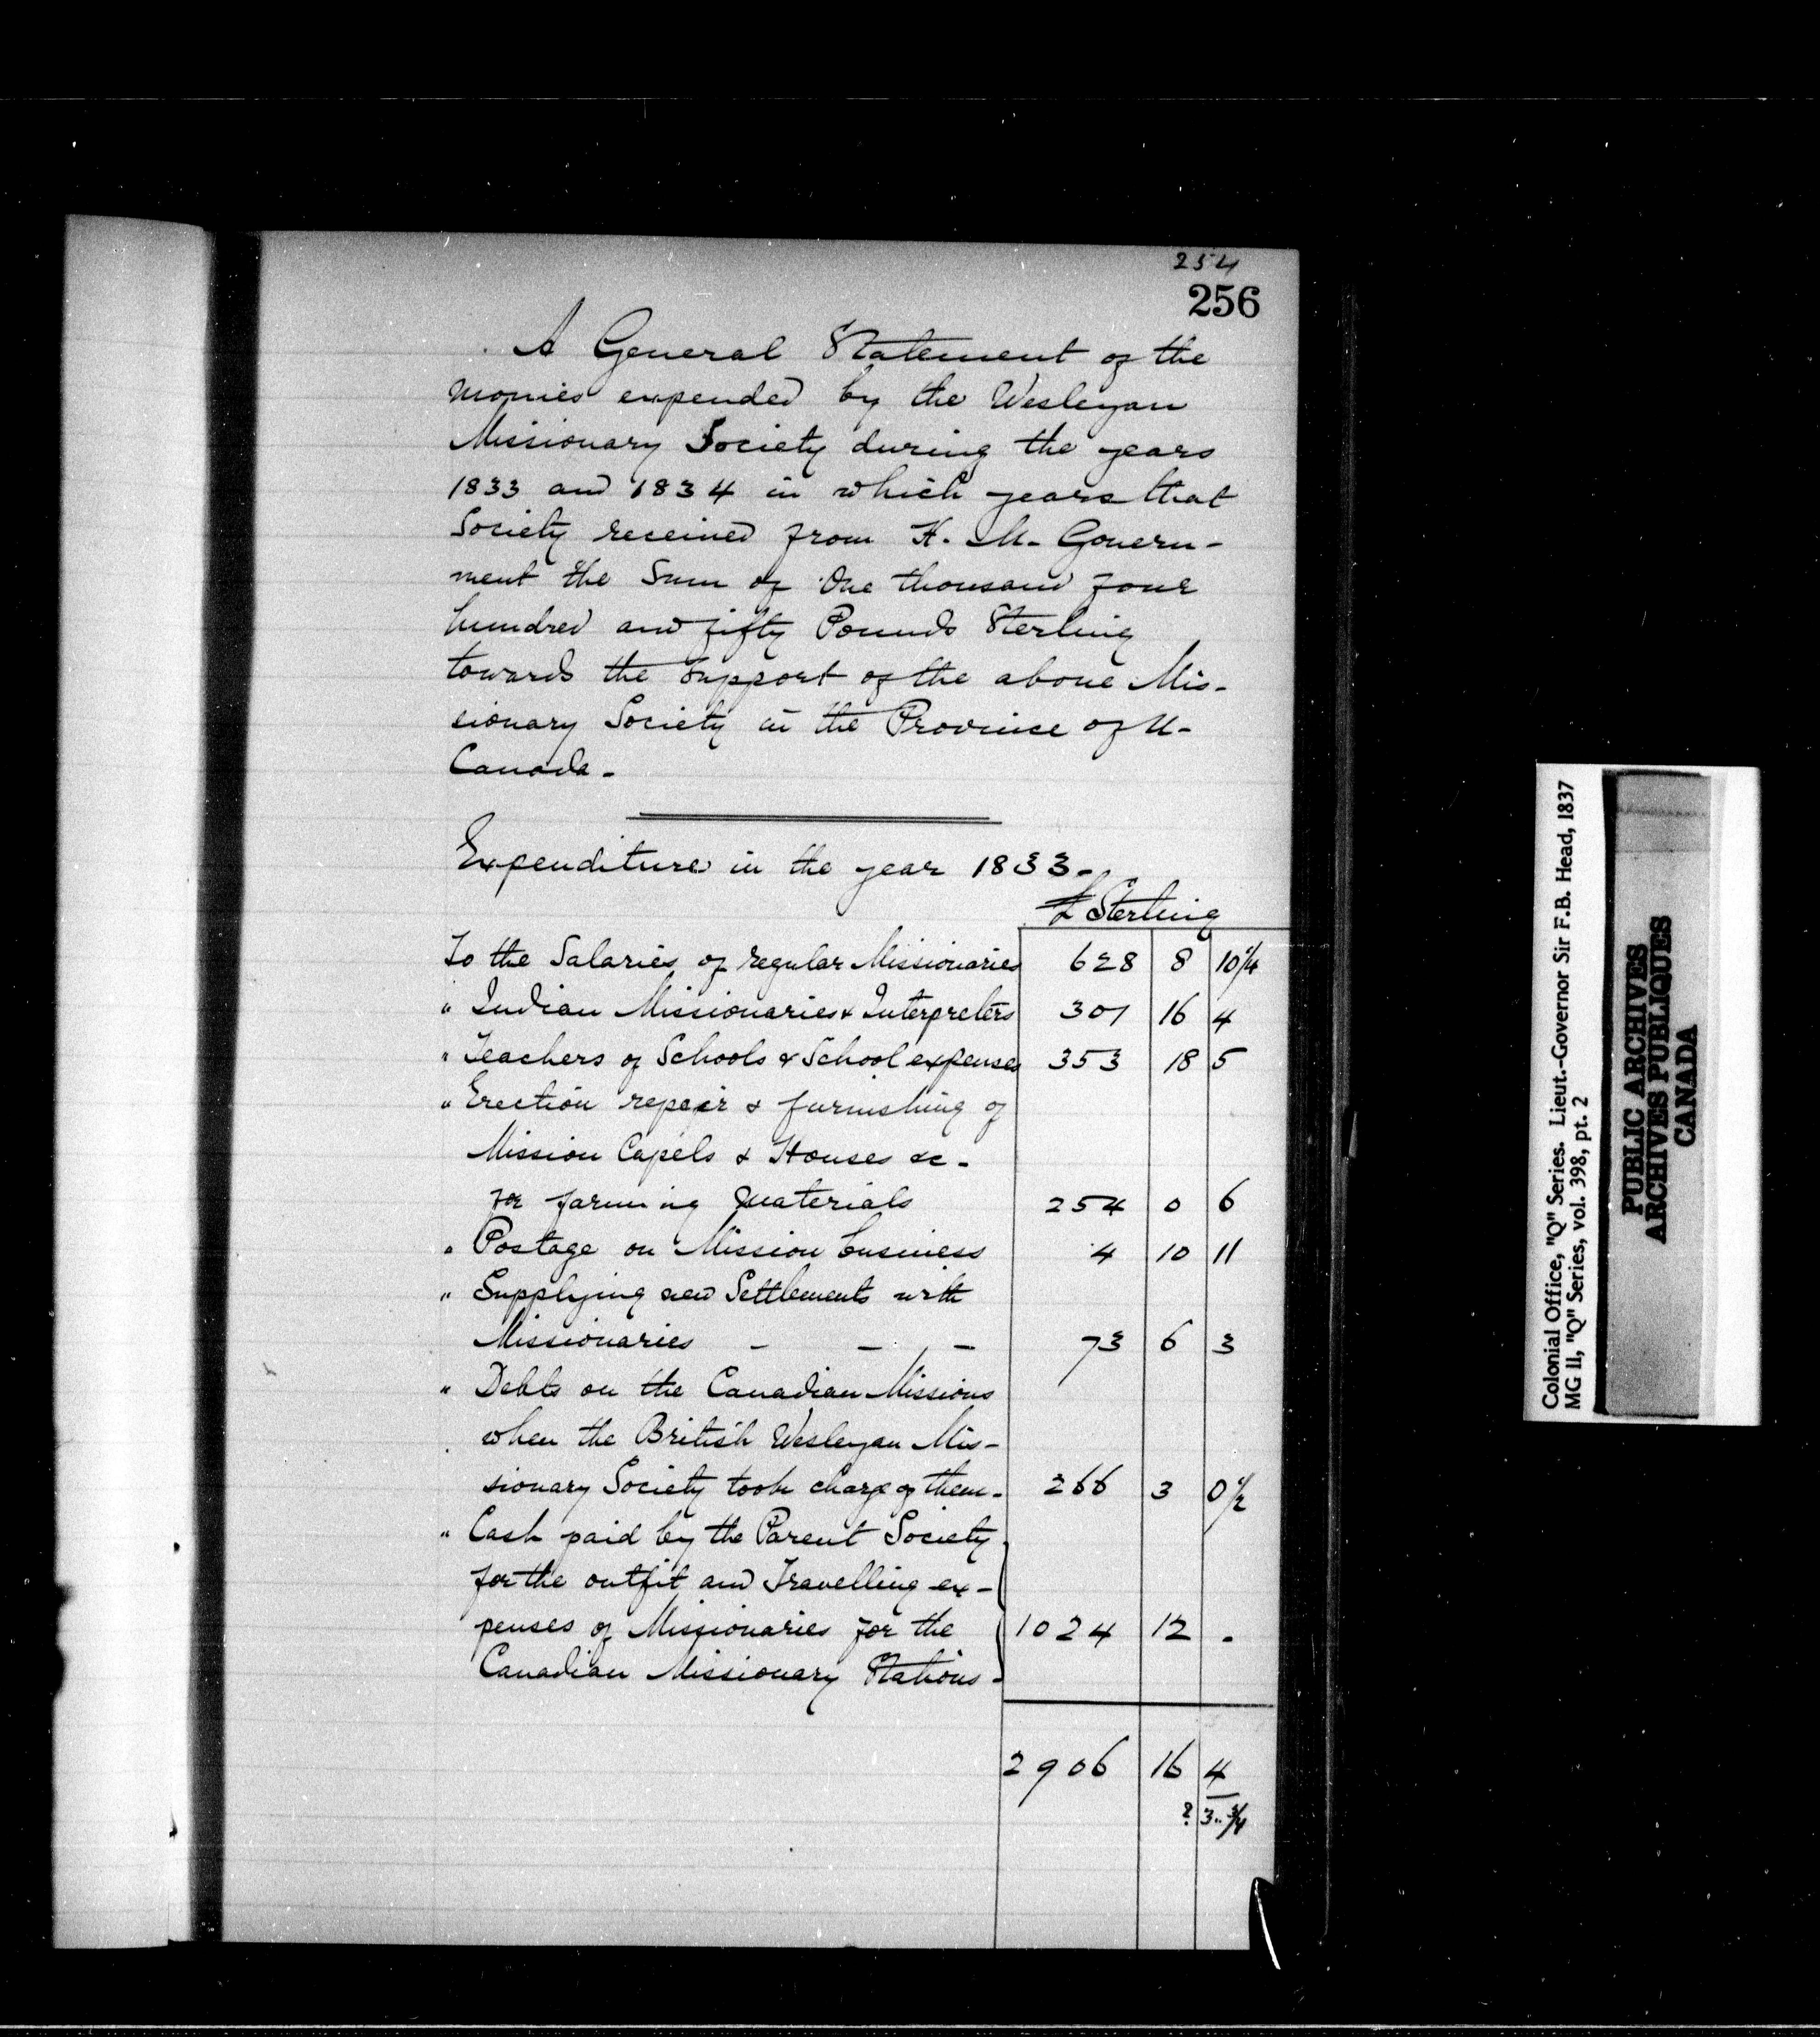 254
256
A General Statement of the
monies expended by the Wesleyan
Missionary Society during the years
1833 and 1834 in which years that
Society received from H. M. Govern-
ment the Sum of One thousand four
hundred and fifty Pounds Sterling
towards the support of the above Mis-
sionary Society in the Province of U-
Canada-
Expenditure in the year 1833-
£ Sterling
To the Salaries of regular Missionaries 628 8 10 1/4
" Indian Missionaries & Interpreters 301 16 4
" Teachers of Schools & School expenses 353 18 5
" Erection repair & furnishing of
Mission Capels & Houses &c-
for farming materials 254 0 6
" Postage on Mission business 4 10 11
" Supplying new Settlements with
Missionaries - - - 73 6 3
" Debts on the Canadian Missions
when the British Wesleyan Mis-
sionary Society took charge of them- 266 3 0 1/2
" Cash paid by the Parent Society
for the outfit and Travelling ex-
penses of Missionaries for the 1024 12 -
Canadian Missionary Stations-
2906 16 4
? 3.. 3/4
Colonial Office, "Q" Series. Lieut.-Governor Sir F.B. Head, 1837
MG 11, "Q" Series, vol. 398, pt. 2
PUBLIC ARCHIVES
ARCHIVES PUBLIQUES
CANADA